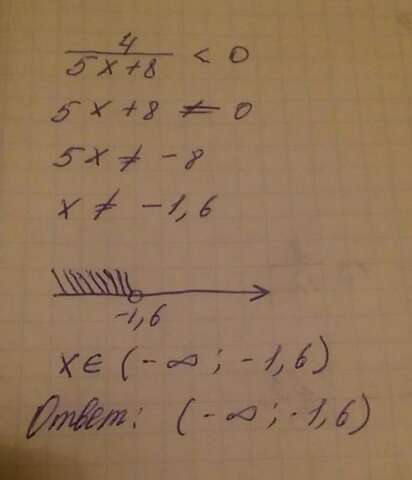 4/(5x+8) < 0
5x+8 ≠ 0
5x ≠ -8
x ≠ -1,6
-1,6
x ∈ (-∞; -1,6)
Ответ: (-∞; -1,6)